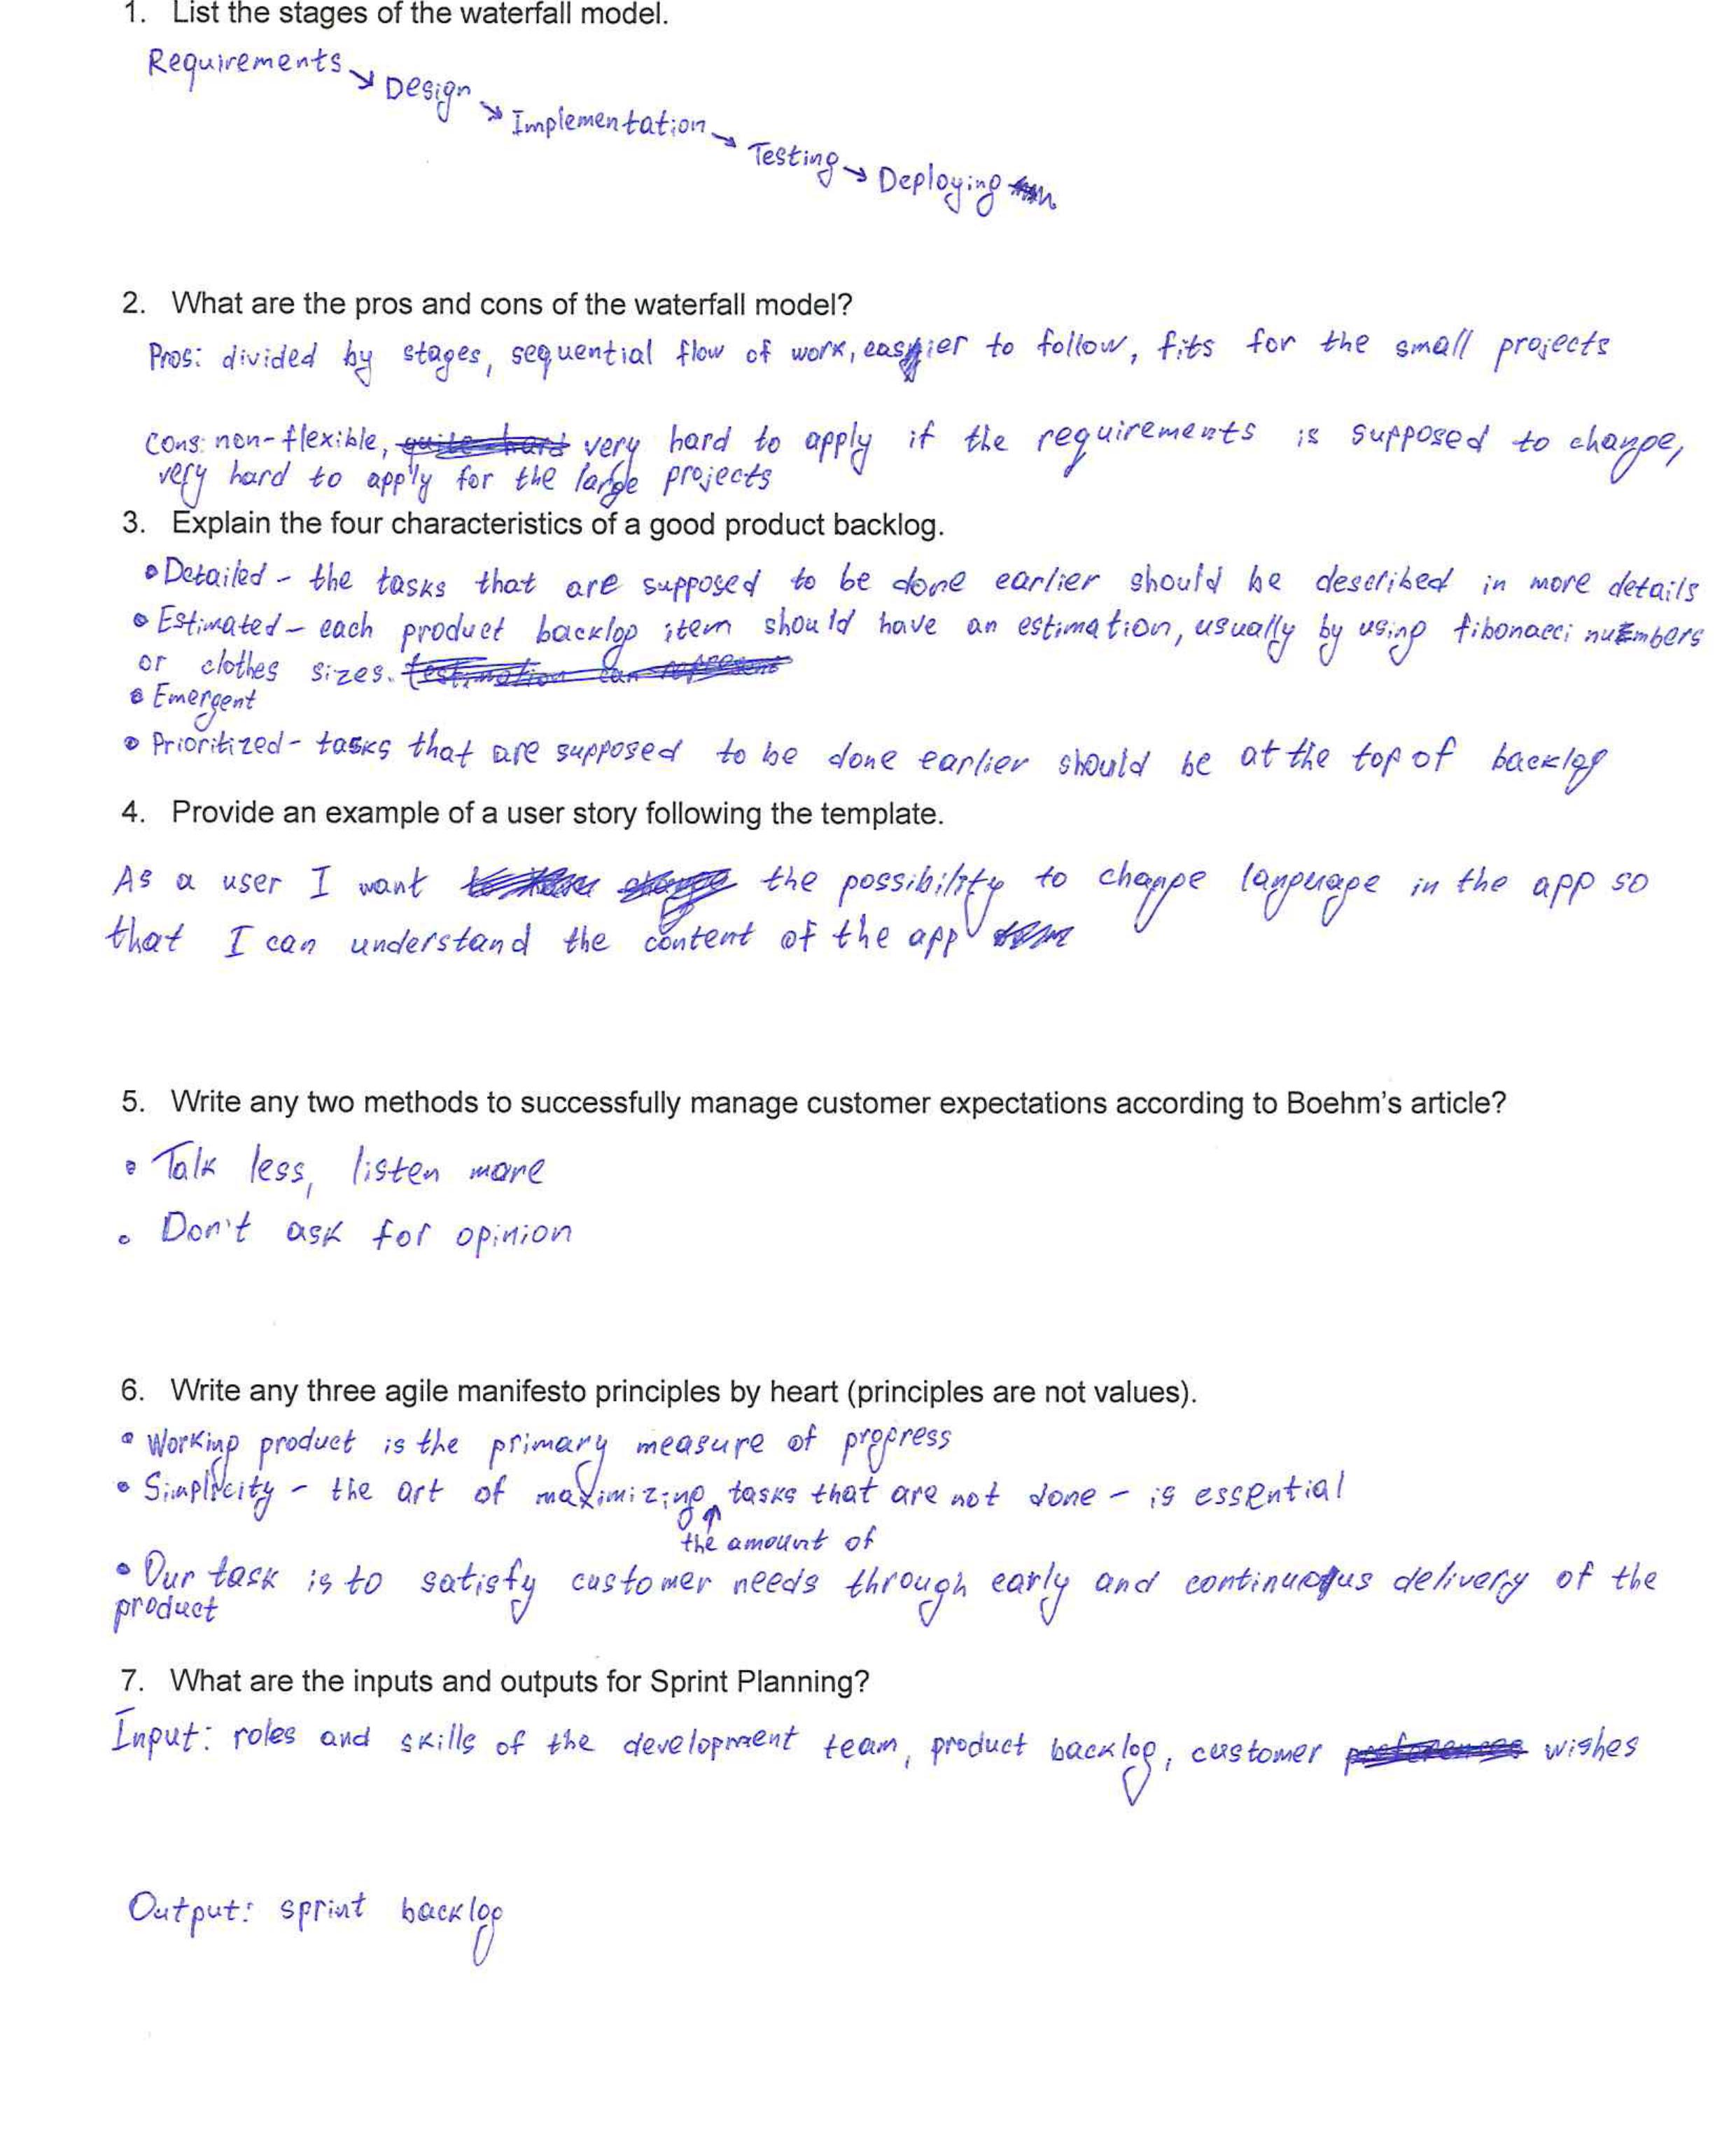 1. List the stages of the waterfall model.
Requirements ↘ Design ↘ Implementation → Testing ↘ Deploying
2. What are the pros and cons of the waterfall model?
Pros: divided by stages, sequential flow of work, easier to follow, fits for the small projects
Cons: non-flexible, quite hard very hard to apply if the requirements is supposed to change,
very hard to apply for the large projects
3. Explain the four characteristics of a good product backlog.
• Detailed - the tasks that are supposed to be done earlier should be described in more details
• Estimated - each product backlog item should have an estimation, usually by using fibonacci numbers
or clothes sizes. estimation can represent
• Emergent
• Prioritized - tasks that are supposed to be done earlier should be at the top of backlog
4. Provide an example of a user story following the template.
As a user I want the possibility to change language in the app so
that I can understand the content of the app
5. Write any two methods to successfully manage customer expectations according to Boehm's article?
• Talk less, listen more
• Don't ask for opinion
6. Write any three agile manifesto principles by heart (principles are not values).
• Working product is the primary measure of progress
• Simplicity - the art of maximizing tasks that are not done - is essential
the amount of
• Our task is to satisfy customer needs through early and continuous delivery of the
product
7. What are the inputs and outputs for Sprint Planning?
Input: roles and skills of the development team, product backlog, customer preferences wishes
Output: sprint backlog